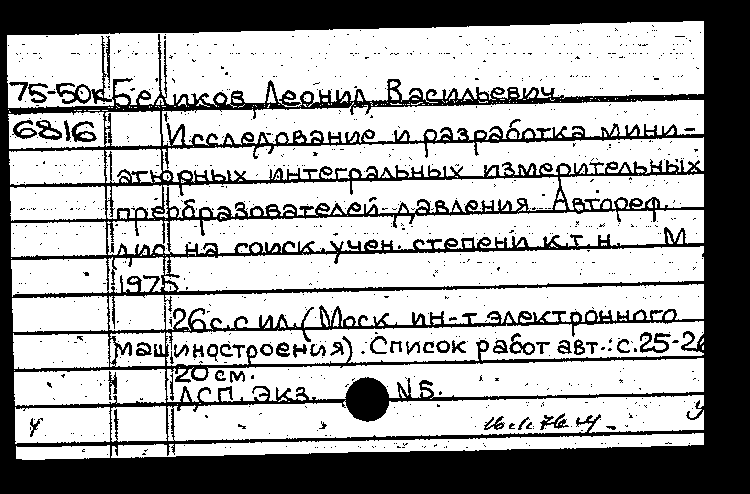 75-50к Беликов, Леонид Васильевич
6816 Исследование и разработка мини-
атюрных интегральных измерительных
преобразователей давления. Автореф.
дис. на соиск. учен. степени к.т.н. М
1975.
26с. с ил. (Моск. ин-т электронного
машиностроения). Список работ авт.: с.25-26
20 см.
ДСП. Экз. №5.